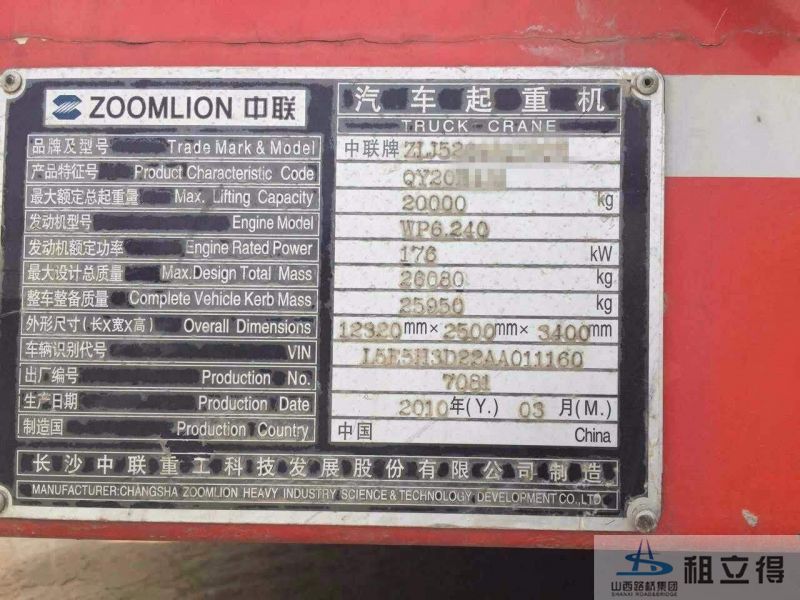 ZOOMLION 中联
汽车起重机
TRUCK CRANE
品牌及型号 Trade Mark & Model 中联牌 ZLJ52
产品特征号 Product Characteristic Code QY20
最大额定总起重量 Max. Lifting Capacity 20000 kg
发动机型号 Engine Model WP6.240
发动机额定功率 Engine Rated Power 176 kW
最大设计总质量 Max.Design Total Mass 26080 kg
整车整备质量 Complete Vehicle Kerb Mass 25950 kg
外形尺寸(长X宽X高) Overall Dimensions 12320mm×2500mm×3400mm
车辆识别代号 VIN L5E5H3D22AA011160
出厂编号 Production No. 7081
生产日期 Production Date 2010年(Y.) 03月(M.)
制造国 Production Country 中国 China
长沙中联重工科技发展股份有限公司制造
MANUFACTURER:CHANGSHA ZOOMLION HEAVY INDUSTRY SCIENCE & TECHNOLOGY DEVELOPMENT CO., LTD.
山西路桥集团 租立得
SHANXI ROAD&BRIDGE